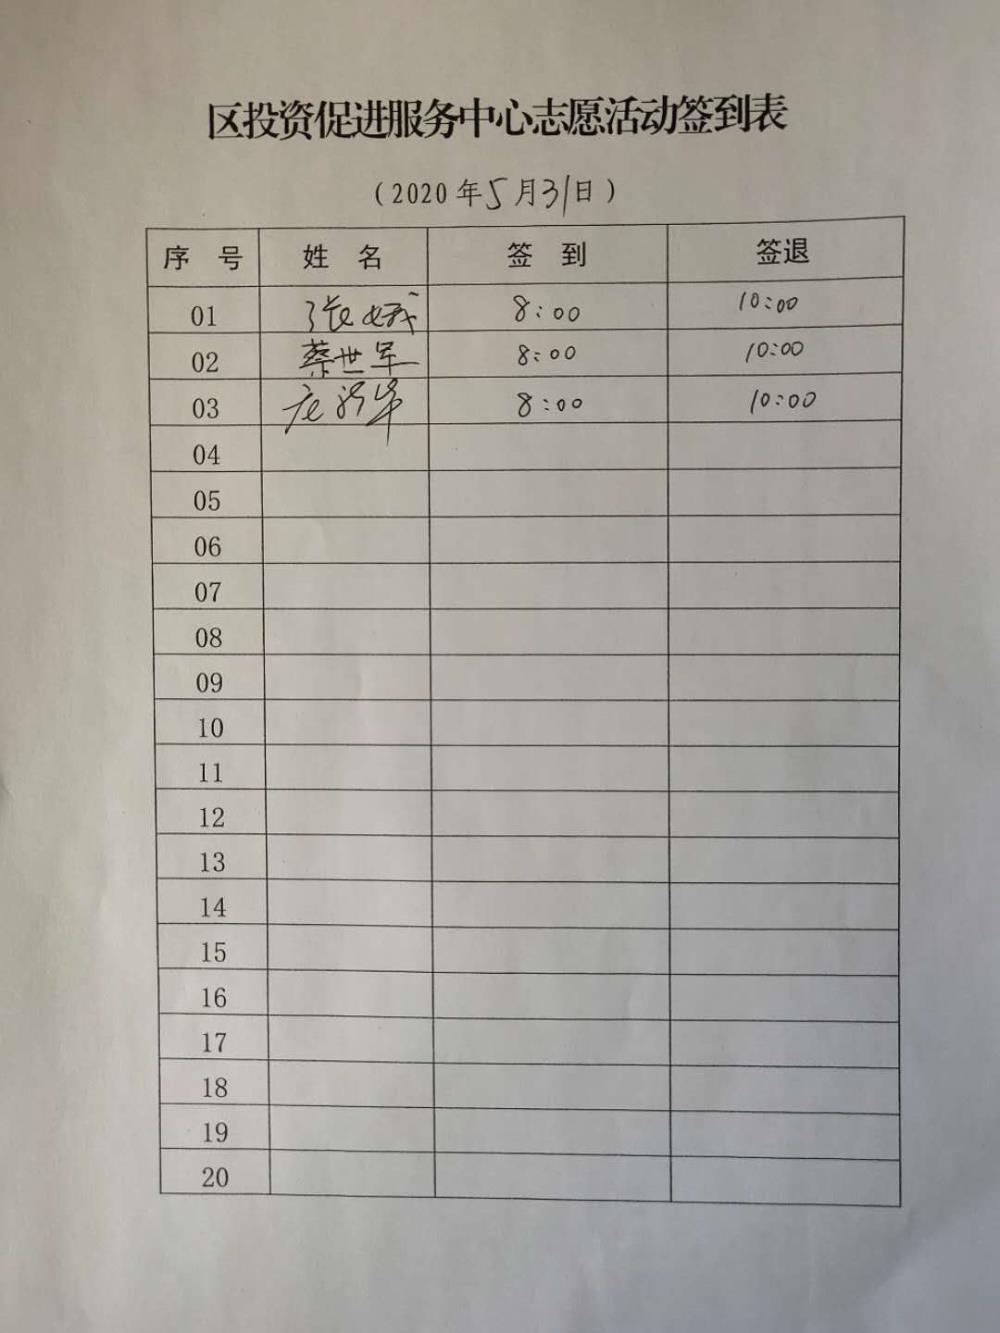 区投资促进服务中心志愿活动签到表
（2020年5月31日）
序 号 姓 名 签 到 签退
01 张 8:00 10:00
02 蔡世军 8:00 10:00
03 8:00 10:00
04
05
06
07
08
09
10
11
12
13
14
15
16
17
18
19
20